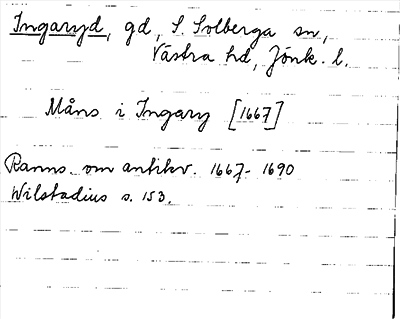 Ingaryd, gd, S. Solberga sn,
Västra hd, Jönk. l.
Måns i Ingary [1667]
Ranns. om antikv. 1667-1690
Wilstadius s. 153.